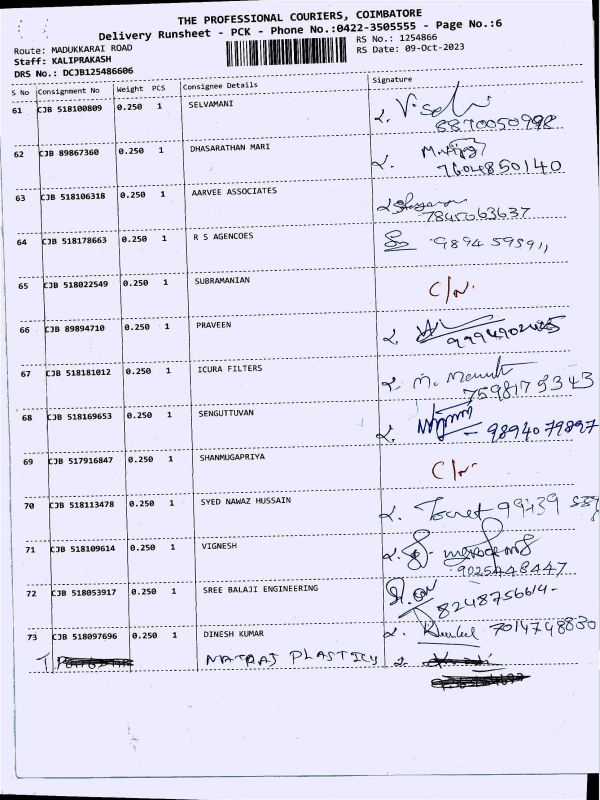 THE PROFESSIONAL COURIERS, COIMBATORE
Delivery Runsheet - PCK - Phone No.:0422-3505555 - Page No.:6
Route: MADUKKARAI ROAD
RS No.: 1254866
Staff: KALIPRAKASH
RS Date: 09-Oct-2023
DRS No.: DCJB125486606
S No Consignment No Weight PCS Consignee Details Signature
61 CJB 518100809 0.250 1 SELVAMANI
8870050998
62 CJB 89867360 0.250 1 DHASARATHAN MARI
7604850140
63 CJB 518106318 0.250 1 AARVEE ASSOCIATES
7845063637
64 CJB 518178663 0.250 1 R S AGENCOES
65 CJB 518022549 0.250 1 SUBRAMANIAN C/N.
66 CJB 89894710 0.250 1 PRAVEEN
67 CJB 518181012 0.250 1 ICURA FILTERS
7598179343
68 CJB 518169653 0.250 1 SENGUTTUVAN
9894079897
69 CJB 517916847 0.250 1 SHANMUGAPRIYA C/N.
70 CJB 518113478 0.250 1 SYED NAWAZ HUSSAIN
71 CJB 518109614 0.250 1 VIGNESH
9025448447
72 CJB 518053917 0.250 1 SREE BALAJI ENGINEERING
8248756614
73 CJB 518097696 0.250 1 DINESH KUMAR 7014748830
NATRAJ PLASTICS